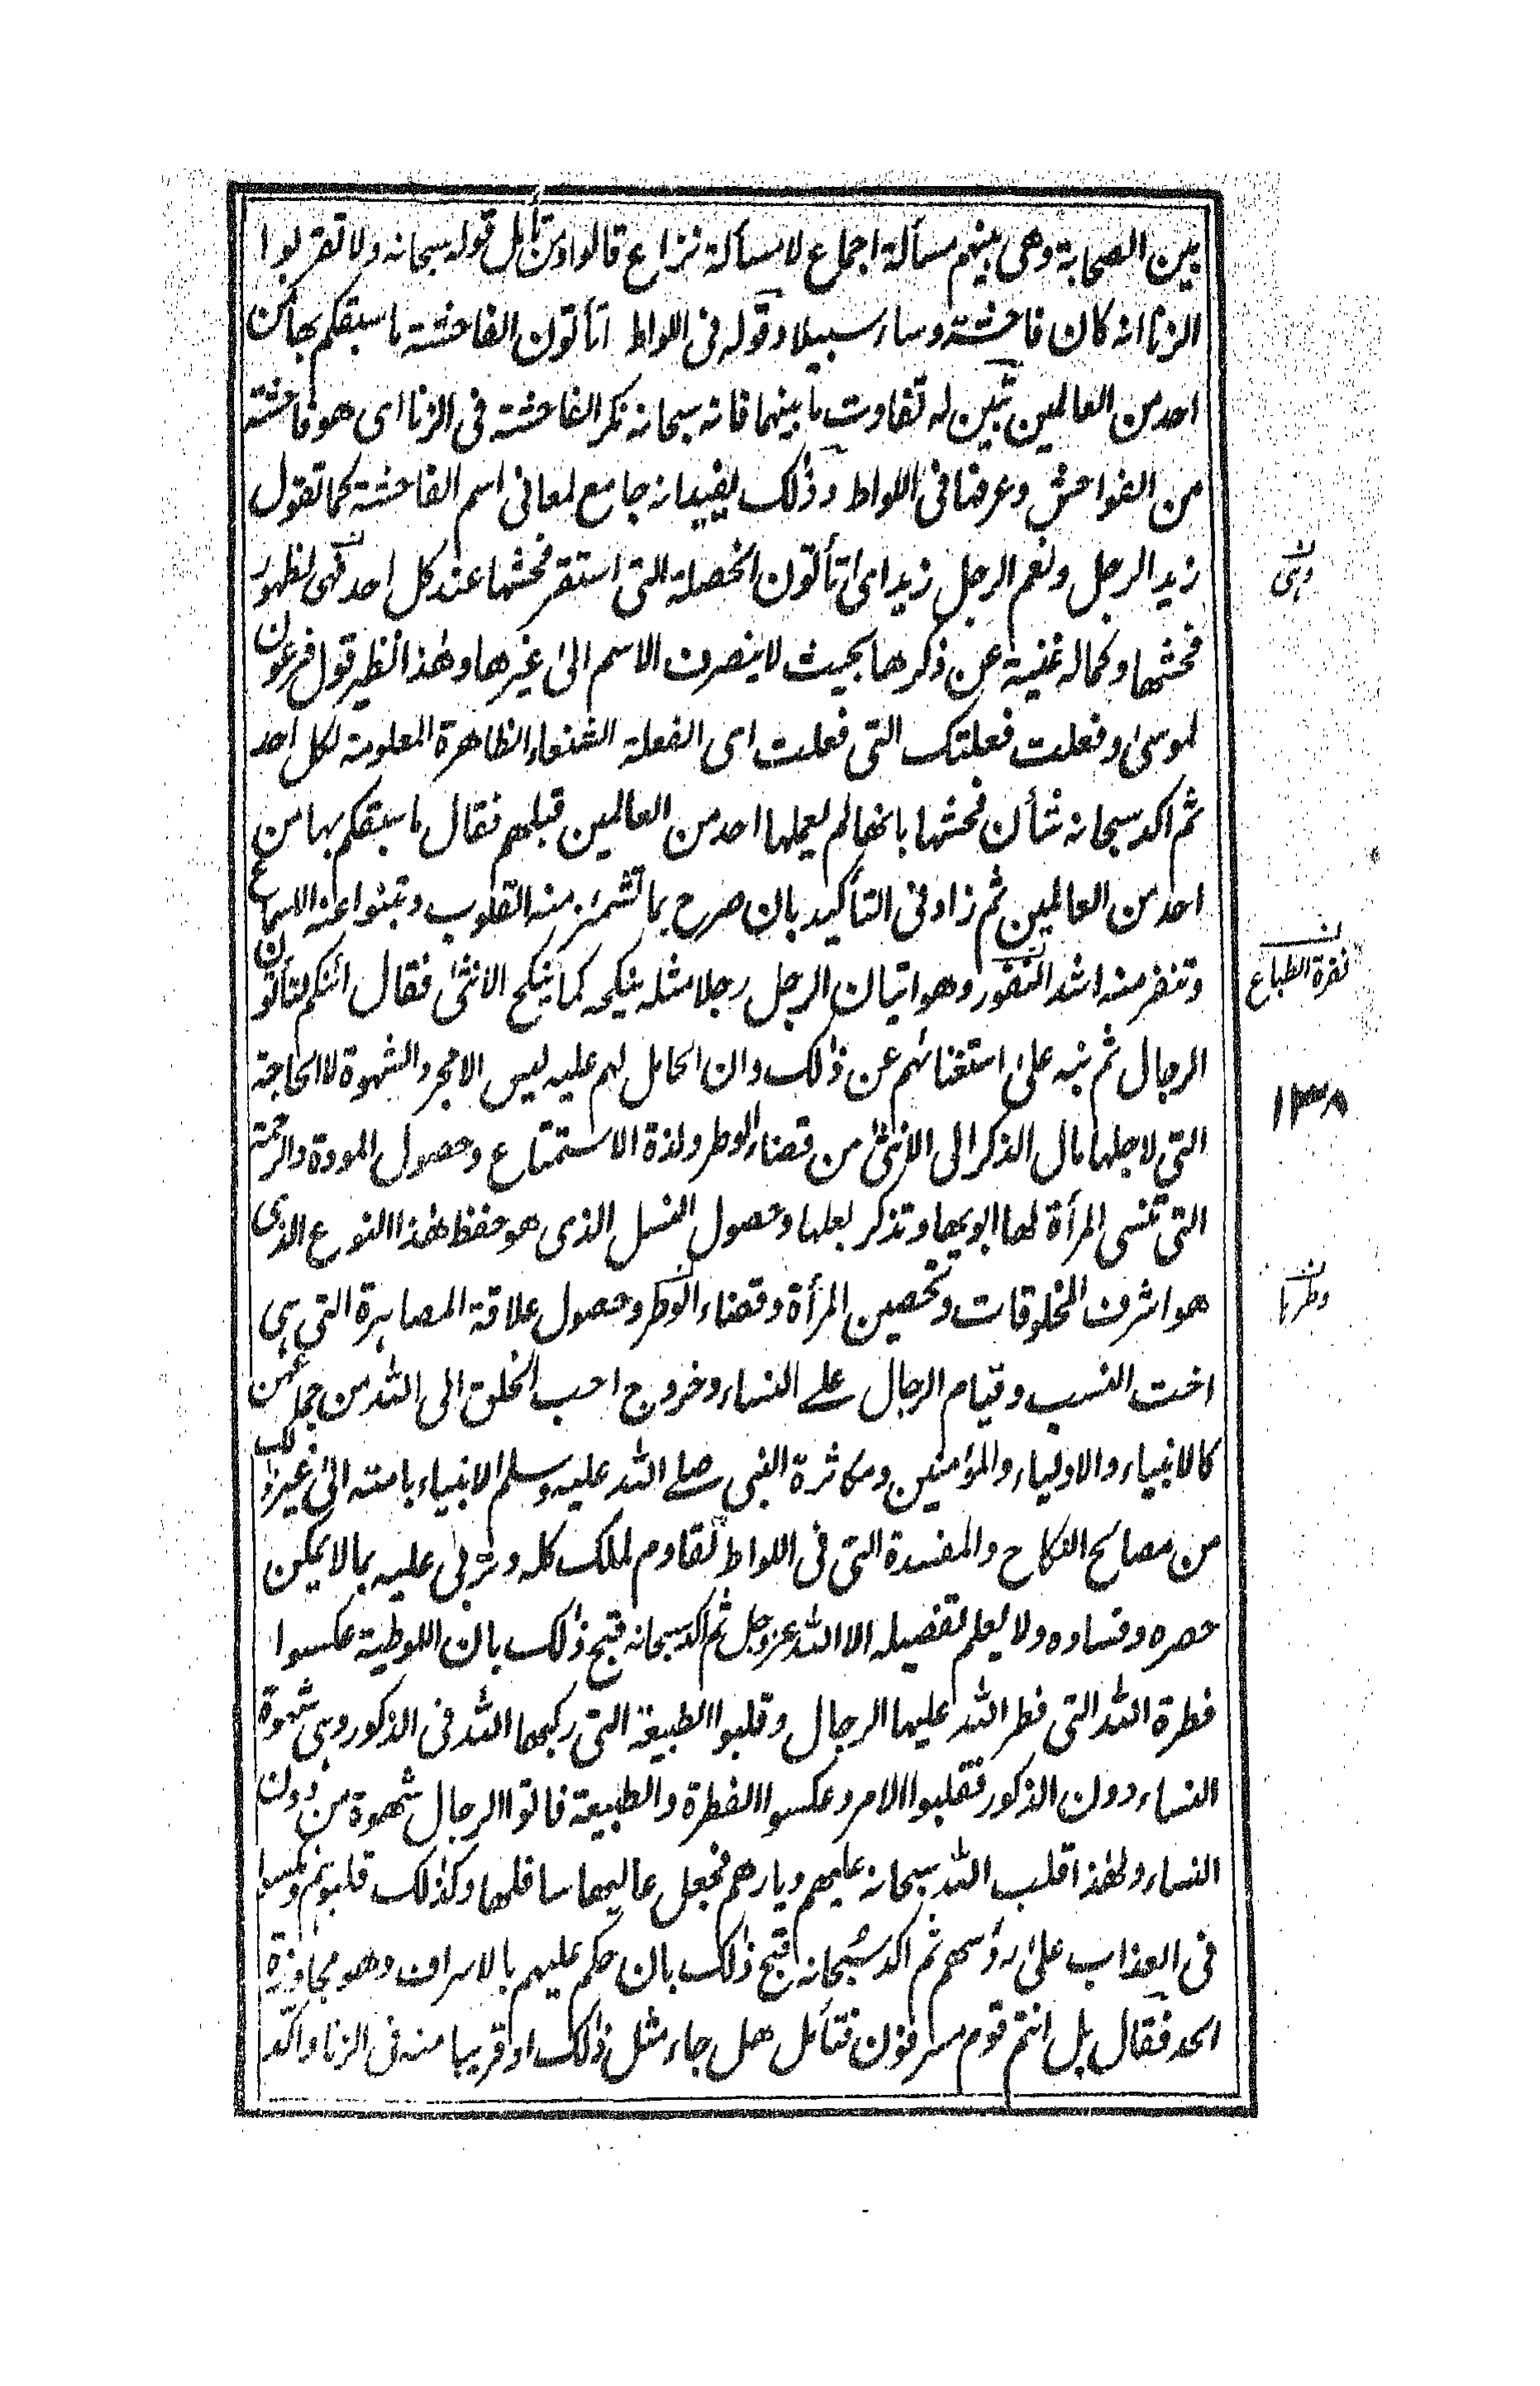 بين الصحابة وهى بينهم مسألة اجماع لا مسألة نزاع قالوا ومن تأمل قوله سبحانه ولا تقربوا
الزنا انه كان فاحشة وساء سبيلا وقوله فى اللواط اتأتون الفاحشة ما سبقكم بها من
احد من العالمين تبين له تفاوت ما بينهما فانه سبحانه نكر الفاحشة فى الزنا اى هو فاحشة
من الفواحش وعرفها فى اللواط وذلك يفيد انه جامع لمعانى اسم الفاحشة كما تقول
زيد الرجل ونعم الرجل زيد اى اتأتون الخصلة التى استقر فحشها عند كل احد فهى لظهور
فحشها وكماله غنية عن ذكرها بحيث لا ينصرف الاسم الى غيرها وهذا نظير قول فرعون
لموسى وفعلت فعلتك التى فعلت اى الفعلة الشنعاء الظاهرة المعلومة لكل احد
ثم اكد سبحانه شأن فحشها بانها لم يعملها احد من العالمين قبلهم فقال ما سبقكم بها من
احد من العالمين ثم زاد فى التأكيد بان صرح بما تشمئز منه القلوب وتنبوا عنه الاسماع
وتنفر منه اشد النفور وهو اتيان الرجل رجلا مثله ينكحه كما ينكح الانثى فقال ائنكم لتأتون
الرجال ثم نبه على استغنائهم عن ذلك وان الحامل لهم عليه ليس الا مجرد الشهوة لا الحاجة
التى لاجلها مال الذكر الى الانثى من قضاء الوطر ولذة الاستمتاع وحصول المودة والرحمة
التى تنسى المرأة لها ابويها وتذكر بعلها وحصول النسل الذى هو حفظ هذا النوع الذى
هو اشرف المخلوقات وتحصين المرأة وقضاء الوطر وحصول علاقة المصاهرة التى هى
اخت النسب وقيام الرجال على النساء وخروج احب الخلق الى الله من جماعهن
كالانبياء والاولياء والمؤمنين ومكاثرة النبى صلے الله عليه وسلم الانبياء بامته الى غير ذلك
من مصالح النكاح والمفسدة التى فى اللواط تقاوم لذلك كله وتربى عليه بما لا يمكن
حصره وفساده ولا يعلم تفصيله الا الله عز وجل ثم اكد سبحانه قبح ذلك بان اللوطية عكسوا
فطرة الله التى فطر الله عليها الرجال وقلبوا الطبيعة التى ركبها الله فى الذكور وهى شهوة
النساء دون الذكور فقلبوا الامر وعكسوا الفطرة والطبيعة فاتوا الرجال شهوة من دون
النساء ولهذا قلب الله سبحانه عليهم ديارهم فجعل عاليها سافلها وكذلك قلبوهم ونكسوا
فى العذاب على رؤسهم ثم اكد سبحانه قبح ذلك بان حكم عليهم بالاسراف وهو مجاوزة
الحد فقال بل انتم قوم مسرفون فتأمل هل جاء مثل ذلك او قريبا منه فى الزنا واكد
ن
وهى
ن
نفرة الطباع
١٣٨
ن
وطرها